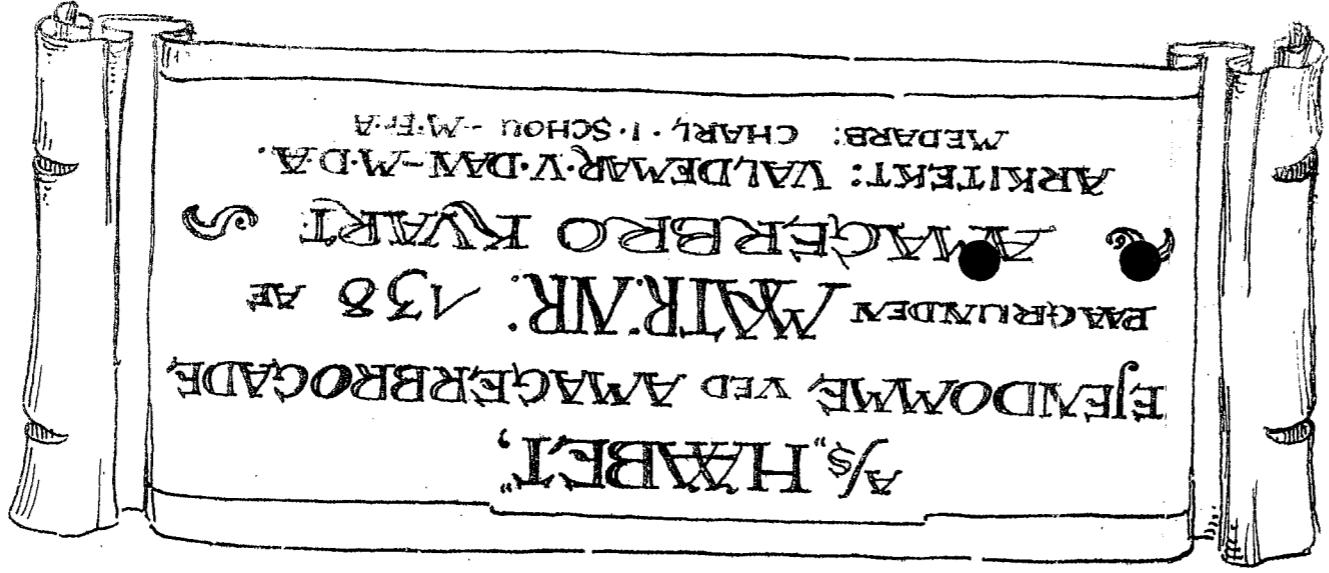 A/S „HAABET",
EJENDOMME VED AMAGERBROGADE
PAA GRUNDEN MATR. NR: 138 AF
AMAGERBRO KVART.
ARKITEKT: VALDEMAR·V·DAN–M·D·A.
MEDARB: CHARL·I·SCHOU–M·Fr·A